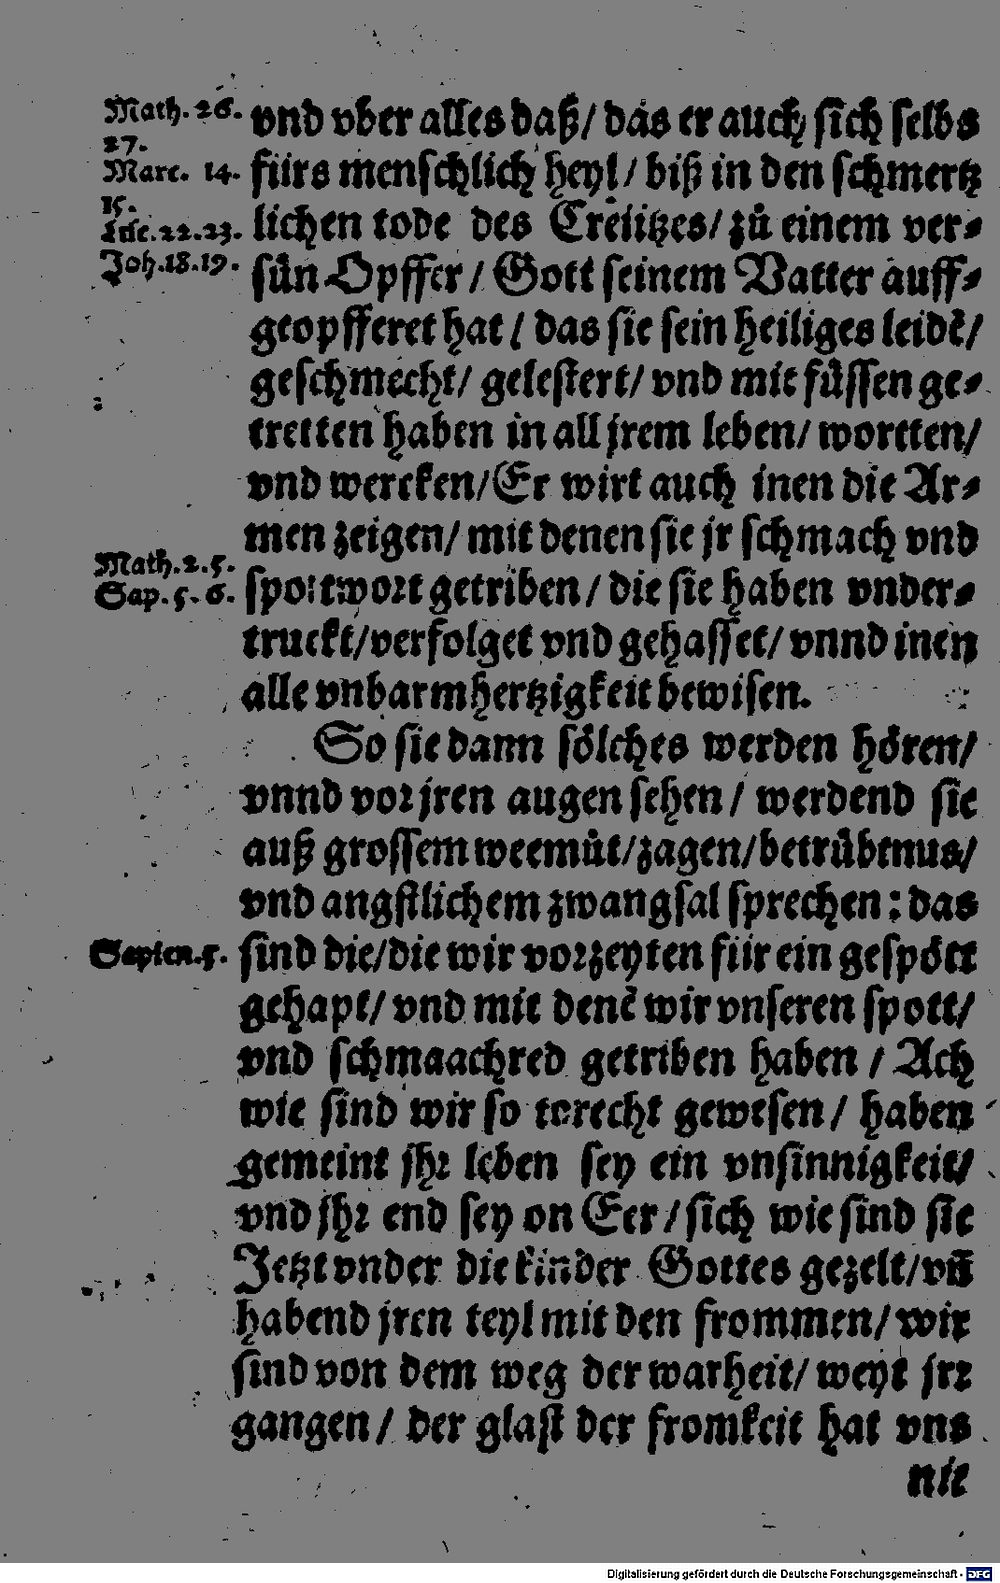 Math. 26.
27.
Marc. 14.
15.
Luc. 22. 23.
Joh. 18. 19.
vnd vber alles daß/ das er auch sich selbs
fürs menschlich heyl/ biß in den schmertz
lichen tode des Creützes/ zů einem ver⸗
sůn Opffer/ Gott seinem Vatter auff⸗
geopfferet hat/ das sie sein heiliges leidẽ/
geschmecht/ gelestert/ vnd mit füssen ge⸗
tretten haben in all jrem leben/ wortten/
vnd wercken/ Er wirt auch inen die Ar⸗
men zeigen/ mit denen sie jr schmach vnd
Math. 2. 5.
Sap. 5. 6.
spottwort getriben/ die sie haben vnder⸗
truckt/ verfolget vnd gehasset/ vnnd inen
alle vnbarmhertzigkeit bewisen.
So sie dann sölches werden hören/
vnnd vor jren augen sehen/ werdend sie
auß grossem weemůt/ zagen/ betrübtnus/
vnd angstlichem zwangsal sprechen: das
Sapien. 5.
sind die/ die wir vorzeyten für ein gespött
gehapt/ vnd mit denẽ wir vnseren spott/
vnd schmaachred getriben haben/ Ach
wie sind wir so torecht gewesen/ haben
gemeint jhr leben sey ein vnsinnigkeit/
vnd jhr end sey on Eer/ sich wie sind sie
Jetzt vnder die kinder Gottes gezelt/ vñ
habend jren teyl mit den frommen/ wir
sind von dem weg der warheit/ weyt jrr
gangen/ der glast der fromkeit hat vns
nit
Digitalisierung gefördert durch die Deutsche Forschungsgemeinschaft - DFG